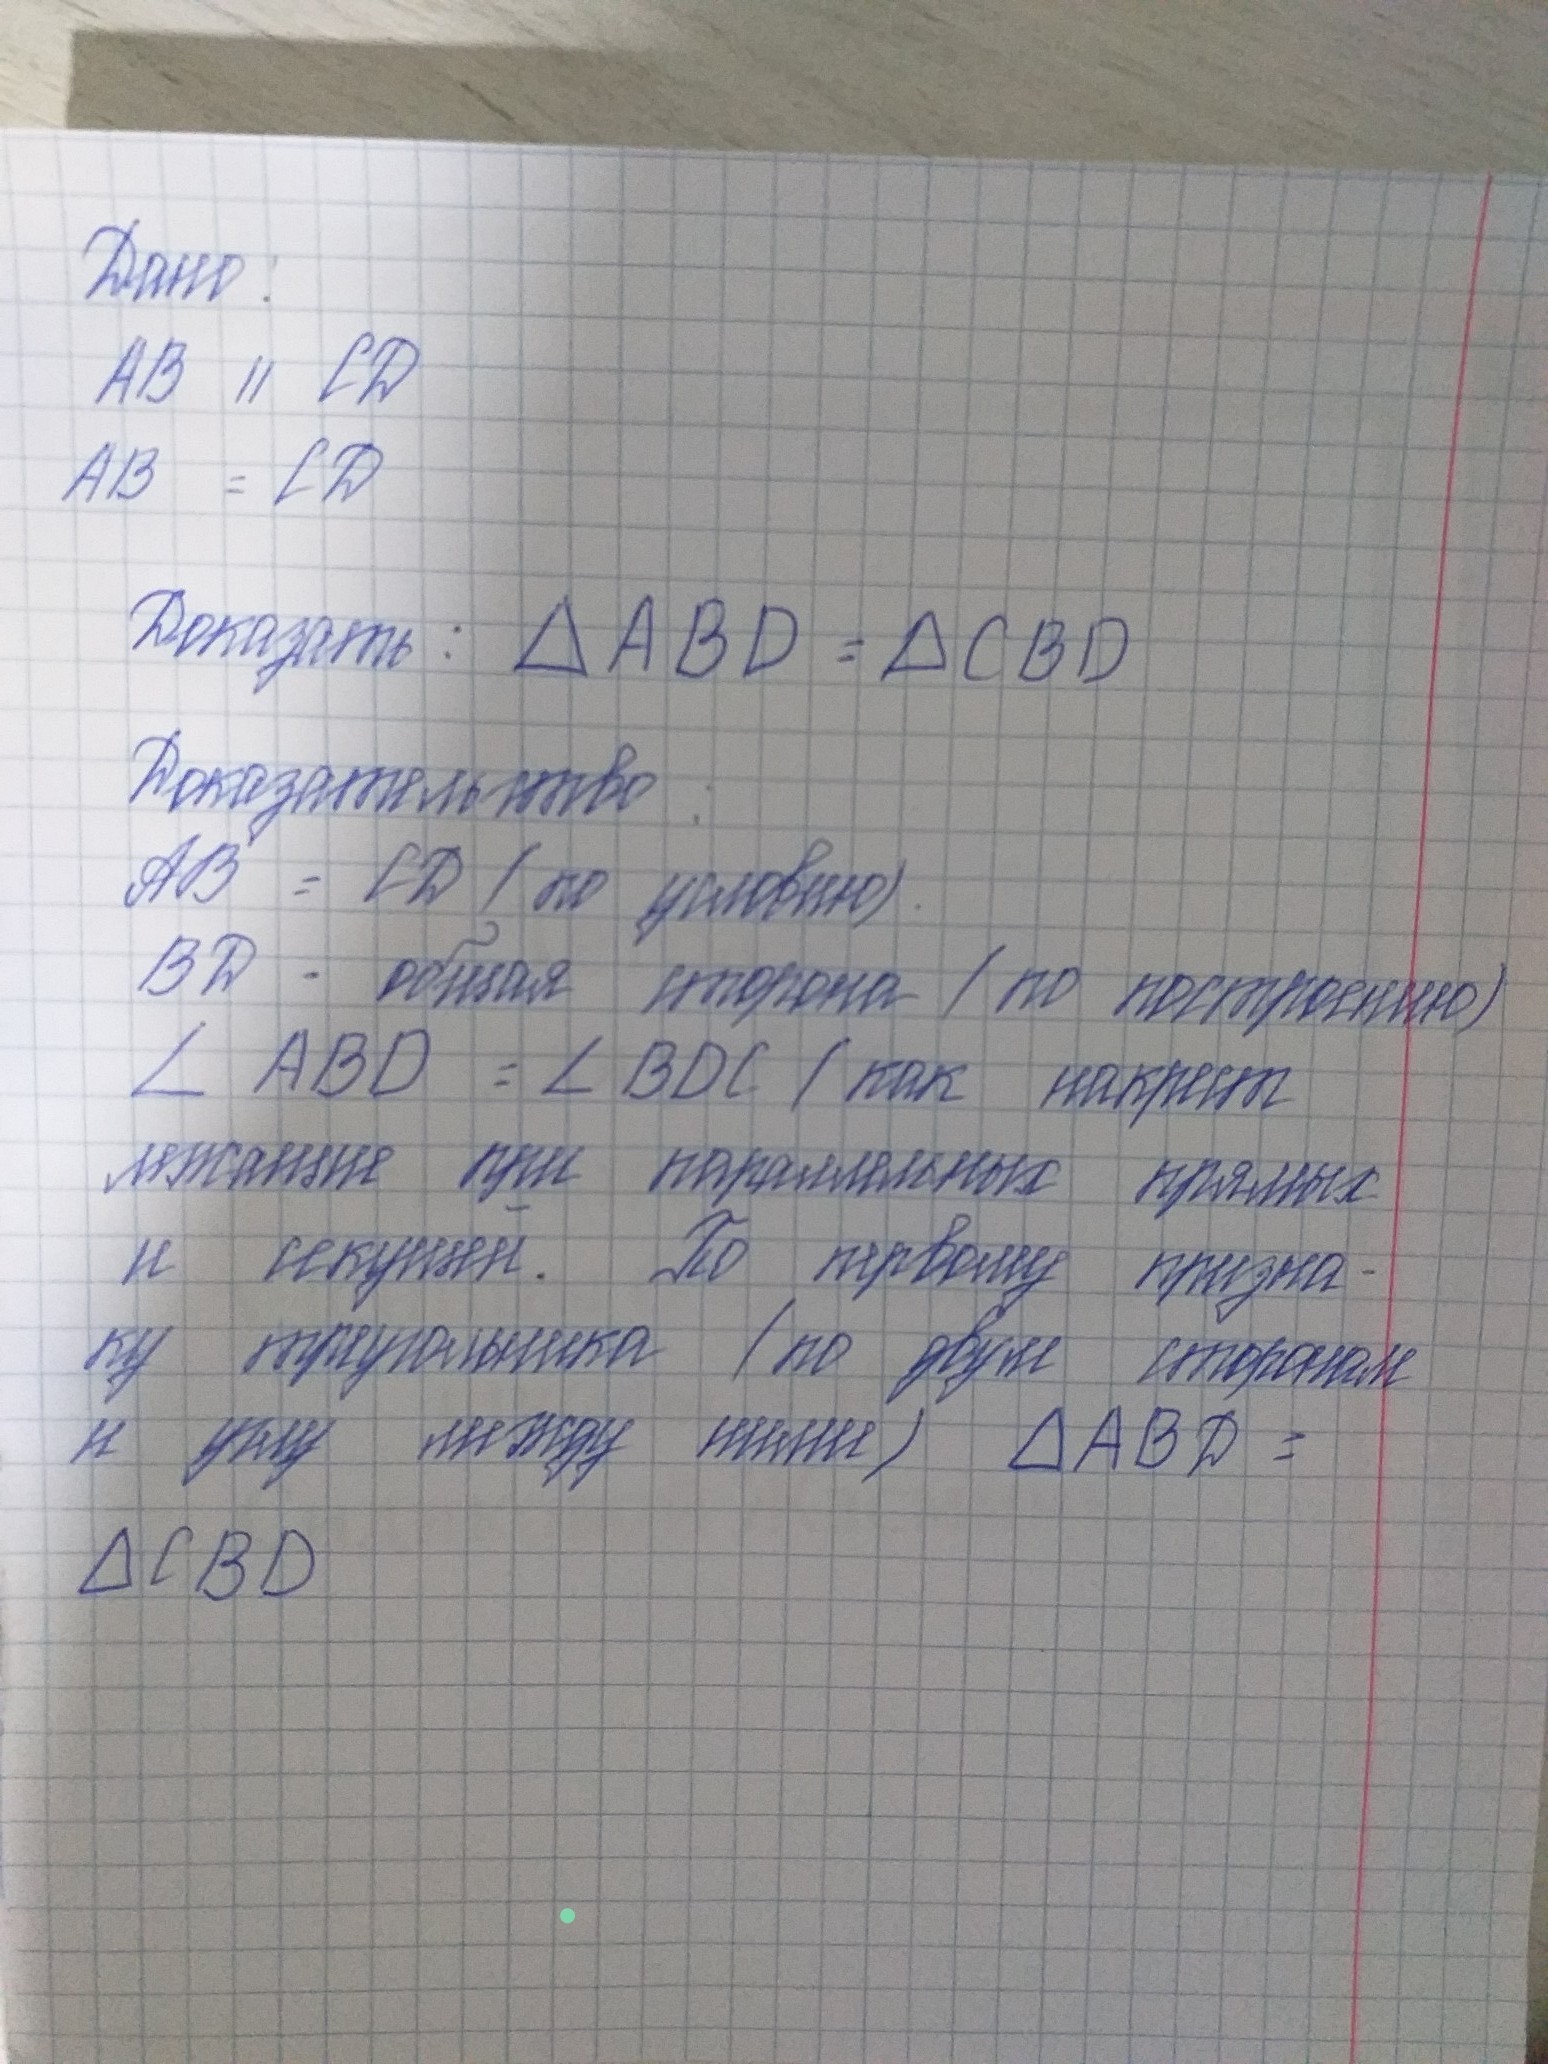 Дано:
AB || CD
AB = CD
Доказать: △ABD = △CBD
Доказательство:
AB = CD (по условию).
BD - общая сторона (по построению)
∠ ABD = ∠ BDC (как накрест
лежащие при параллельных прямых
и секущей. По первому призна-
ку треугольника (по двум сторонам
и углу между ними) △ABD =
△CBD